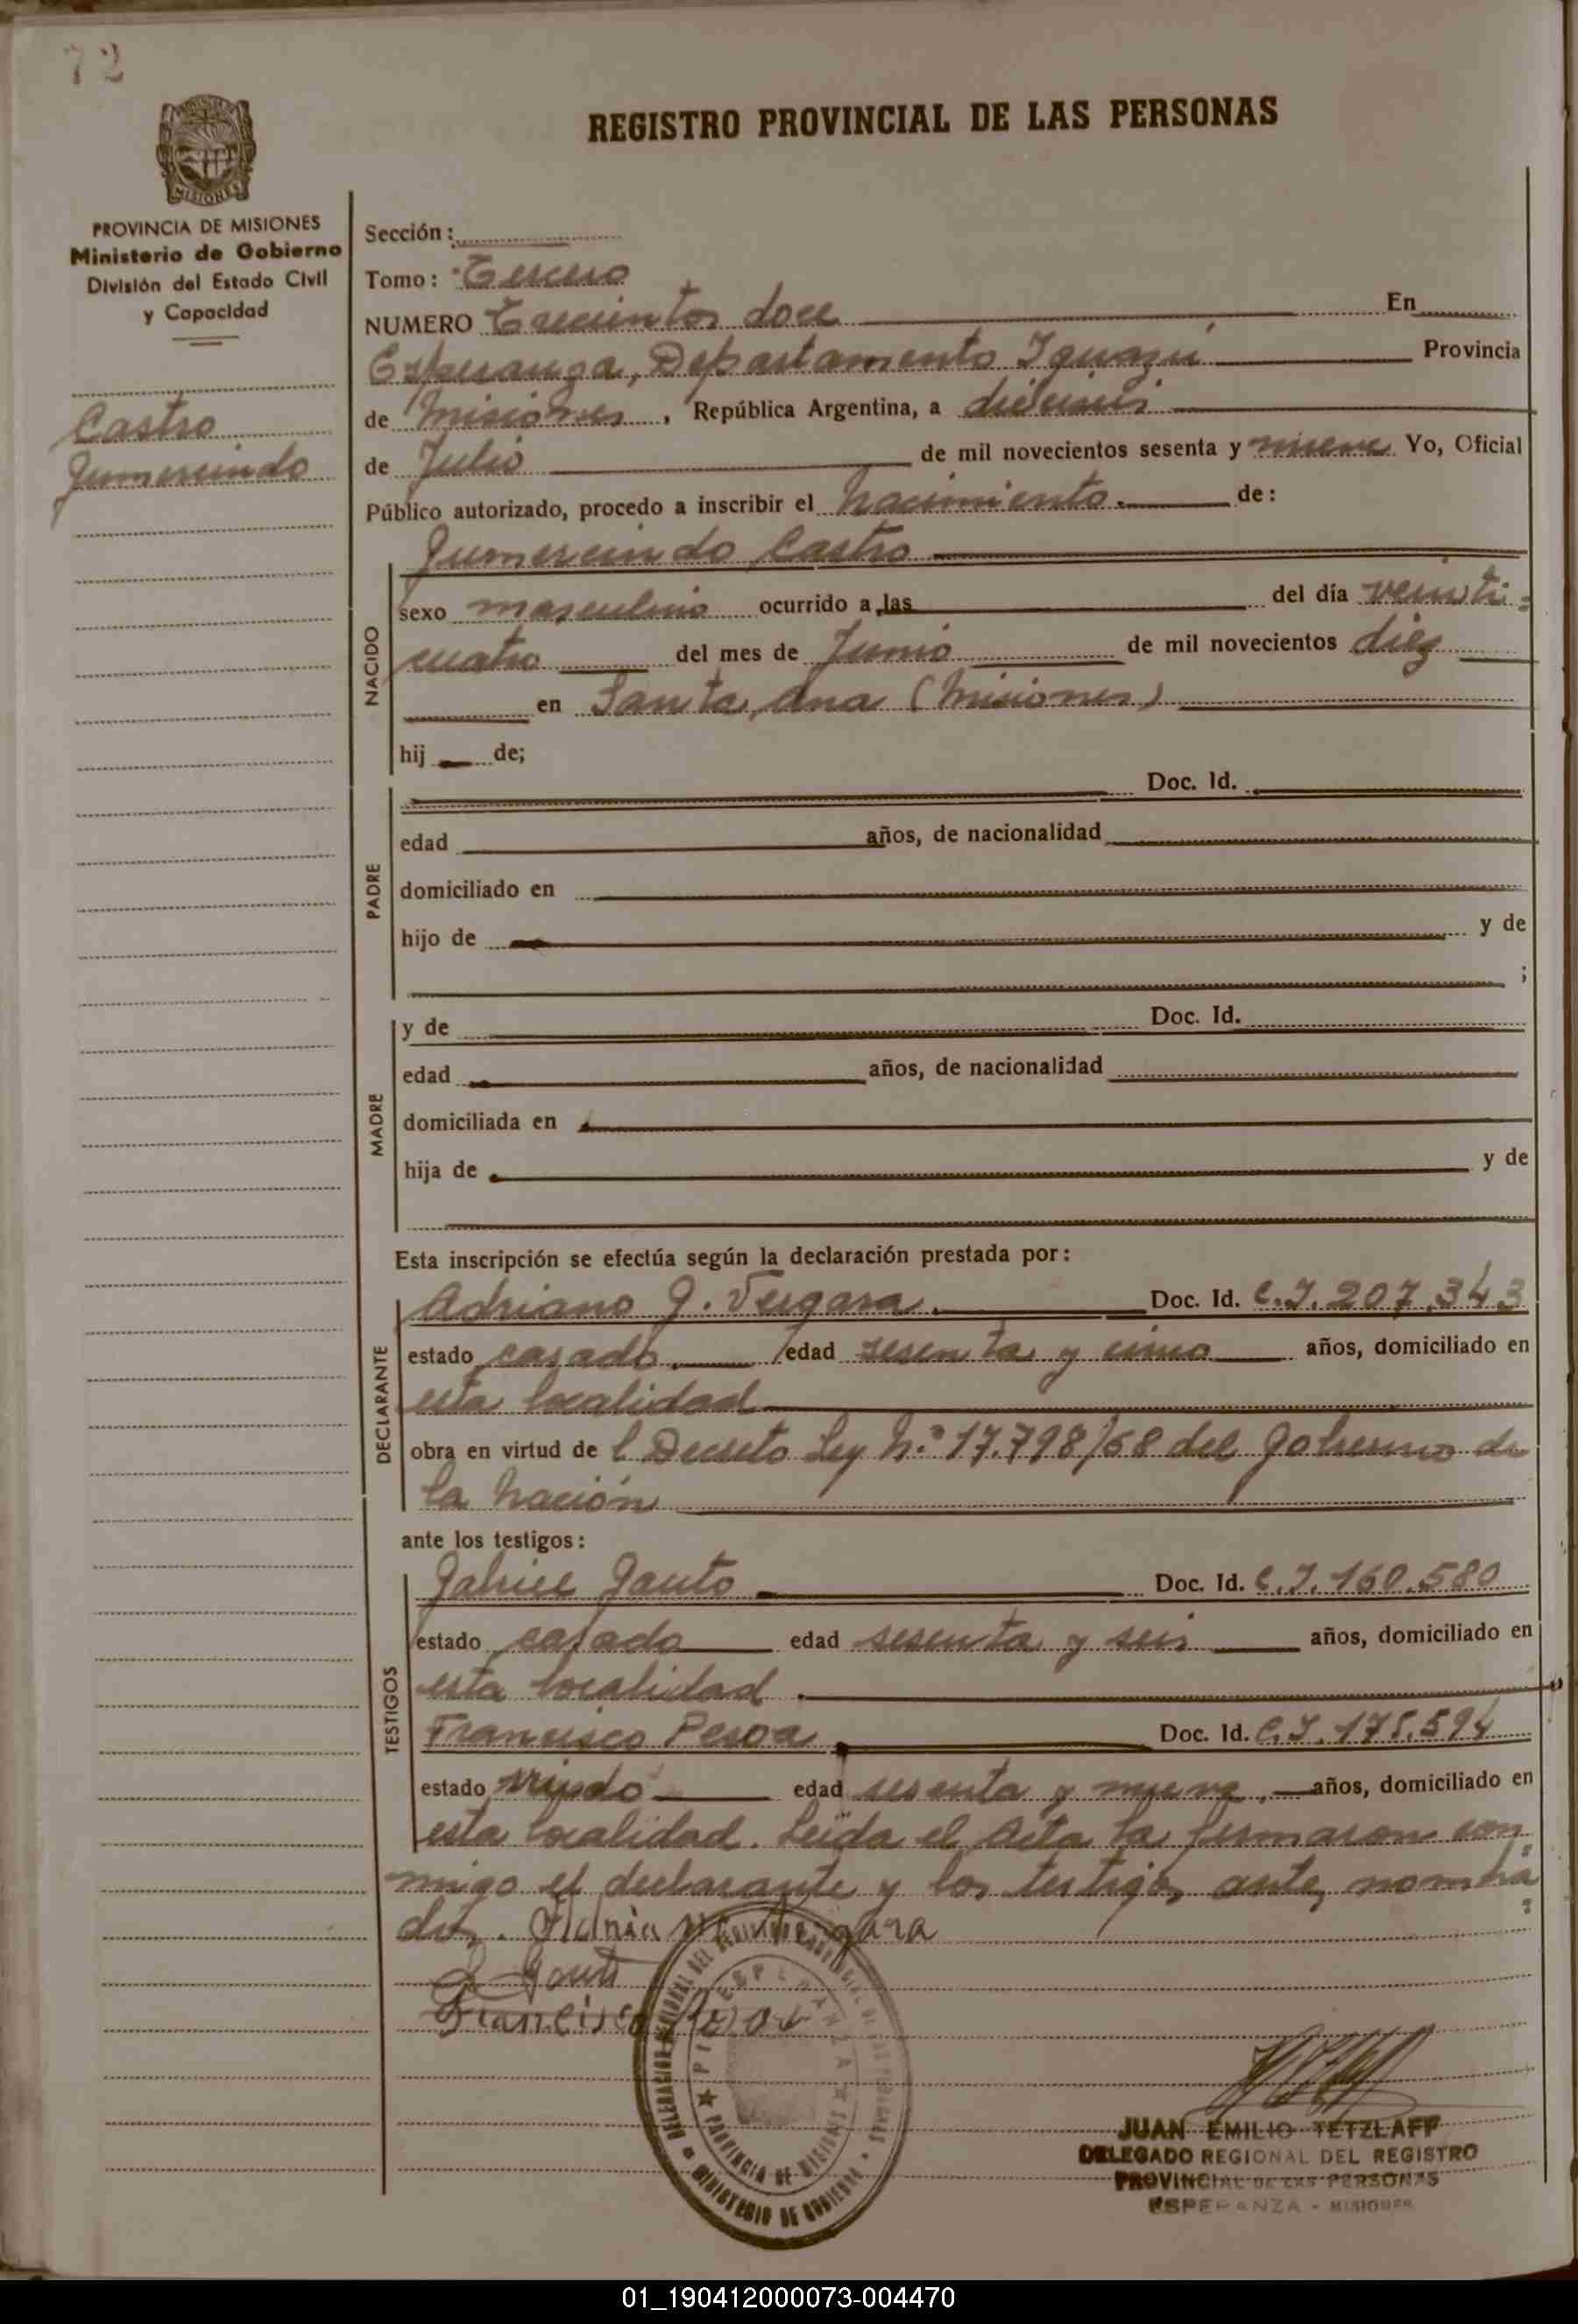 72
REGISTRO PROVINCIAL DE LAS PERSONAS
MISIONES
PROVINCIA DE MISIONES
Ministerio de Gobierno
División del Estado Civil
y Capacidad
Castro
Gumersindo
Sección:
Tomo: Tercero
NUMERO Trecientos doce En
Esperanza, Departamento Iguazú Provincia
de Misiones, República Argentina, a dieciseis
de Julio de mil novecientos sesenta y nueve Yo, Oficial
Público autorizado, procedo a inscribir el nacimiento de:
NACIDO
Gumersindo Castro
sexo masculino ocurrido a las del día veinti=
cuatro del mes de Junio de mil novecientos diez
en Santa Ana (Misiones)
hij de;
PADRE
Doc. Id.
edad años, de nacionalidad
domiciliado en
hijo de y de
;
MADRE
y de Doc. Id.
edad años, de nacionalidad
domiciliada en
hija de y de
Esta inscripción se efectúa según la declaración prestada por:
DECLARANTE
Adriano G. Vergara. Doc. Id. C.I. 207.343
estado casado edad sesenta y cinco años, domiciliado en
esta localidad
obra en virtud de l Decreto Ley N.º 17.798/68 del Gobierno de
la Nación
ante los testigos:
TESTIGOS
Gabriel Gauto Doc. Id. C.I. 160.580
estado casado edad sesenta y seis años, domiciliado en
esta localidad.
Francisco Pesoa Doc. Id. C.I. 178.594
estado viudo edad sesenta y nueve, años, domiciliado en
esta localidad. Leída el Acta la firmaron con
migo el declarante y los testigos ante nombra=
dos.
G Gauto
Francisco
ESPERANZA
PROVINCIA DE MISIONES
MINISTERIO DE GOBIERNO
JUAN EMILIO TETZLAFF
DELEGADO REGIONAL DEL REGISTRO
PROVINCIAL DE LAS PERSONAS
ESPERANZA - MISIONES
01_190412000073-004470